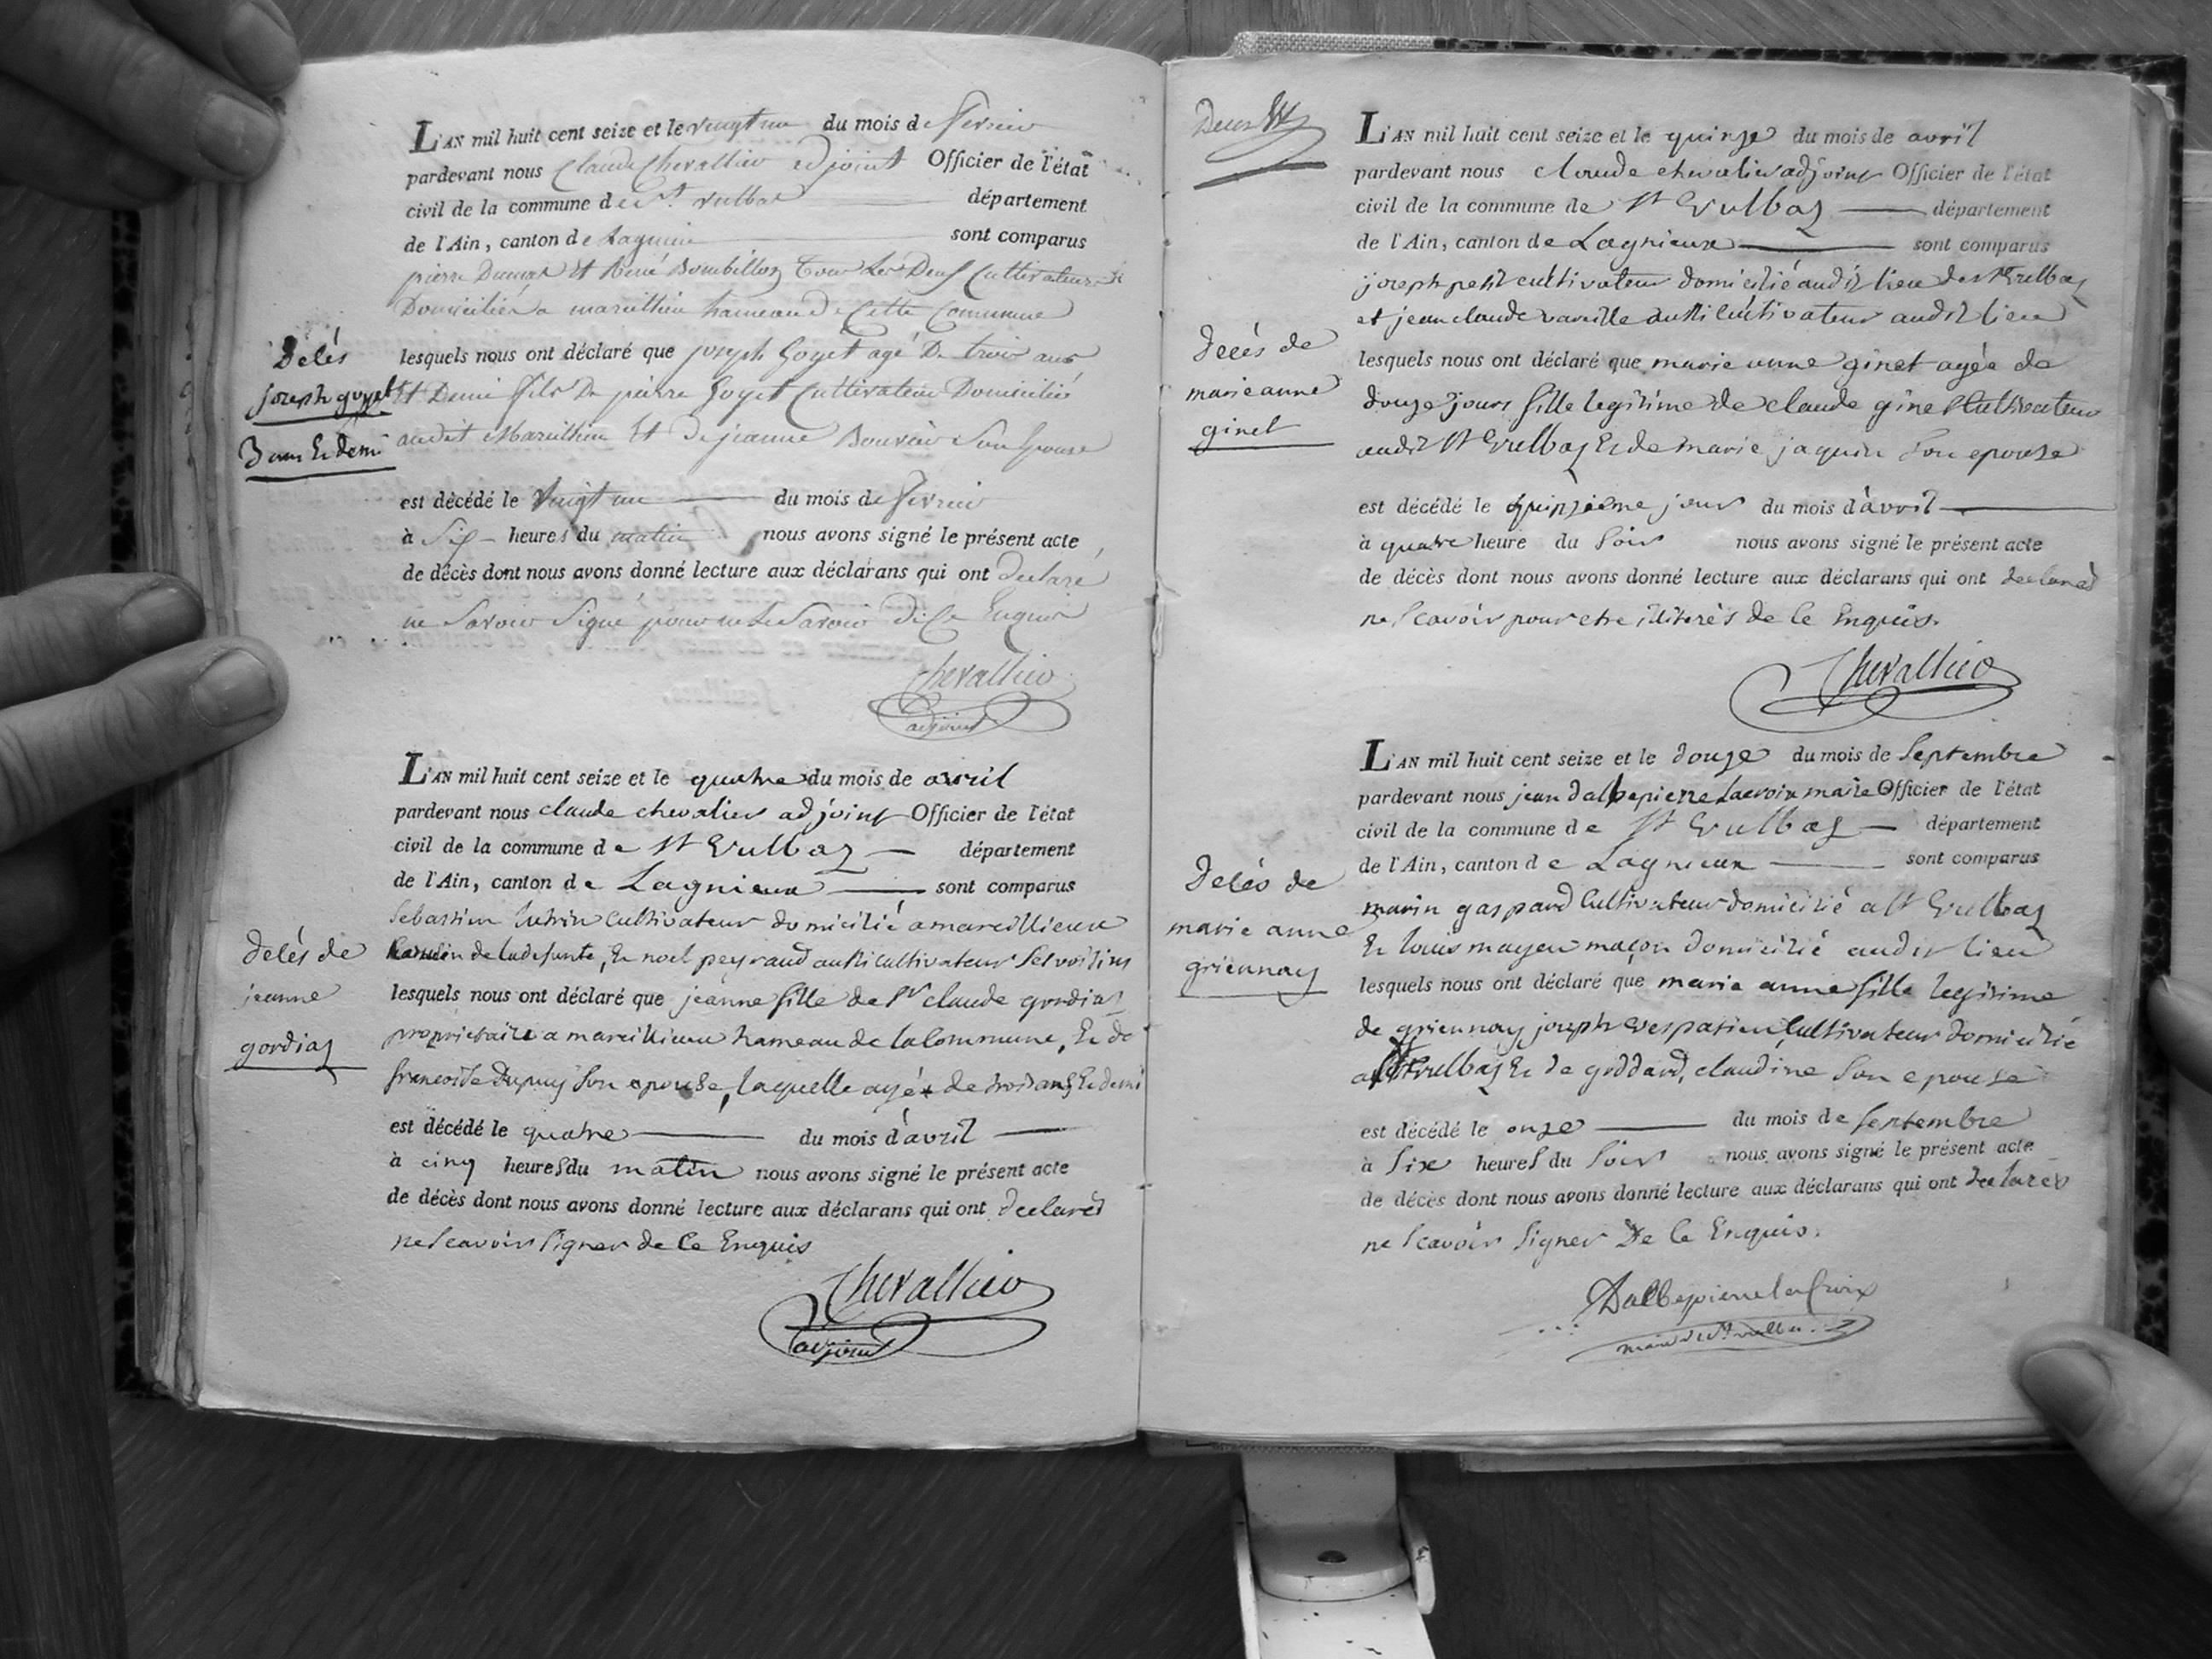 L'AN mil huit cent seize et le vingt un du mois de fevrier
pardevant nous Claude Chevallier adjoint Officier de l'état
civil de la commune de St. vulbas département
de l'Ain, canton de Lagnieu sont comparus
pierre Dumas Et René Bombillon tous les Deux Cultivateurs
Domiciliés a marcillieu hameau de Cette Commune
Delés
joseph goyet
3 ans Et demi
lesquels nous ont déclaré que joseph Goyet agé De trois ans
Et Demi fils De pierre Goyet Cultivateur Domicilié
audit Marcillieu Et de jeanne Bouvier Son Epouse
est décédé le Vingt un du mois de fevrier
à Six heures du matin nous avons signé le présent acte
de décès dont nous avons donné lecture aux déclarans qui ont declaré
ne Savoir Signé pour ne le Savoir de ce Enquis
Chevallier
adjoint
L'AN mil huit cent seize et le quatre du mois de avril
pardevant nous claude chevalier adjoint Officier de l'état
civil de la commune de St Vulbas département
de l'Ain, canton de Lagnieux sont comparus
Sebastien cultivateur domicilié a marcillieux
de la defunte, Et noel peyraud aussi cultivateur ses voisins
delés de
jeanne
gordias
lesquels nous ont déclaré que jeanne fille de Sr claude gordias
proprietaire a marcillieux hameau de la Commune, Et de
francoise Dupuy son epouse, laquelle agée de trois ans Et demi
est décédé le quatre du mois d'avril
à cinq heures du matin nous avons signé le présent acte
de décès dont nous avons donné lecture aux déclarans qui ont declarés
ne scavoir signer de ce Enquis
Chevallier
adjoint
Deux
L'AN mil huit cent seize et le quinze du mois de avril
pardevant nous cloude chevalier adjoint Officier de l'état
civil de la commune de St Vulbas département
de l'Ain, canton de Lagnieux sont comparus
joseph petit cultivateur domicilié audit lieu de St Vulbas
et jean claude vareille aussi cultivateur audit lieu
decés de
marie anne
ginet
lesquels nous ont déclaré que marie anne ginet agée de
douze jours fille legitime de claude ginet Cultivateur
audit St Vulbas Et de marie jaquin son epouse
est décédé le quinzieme jour du mois d'avril
à quatre heure du soir nous avons signé le présent acte
de décès dont nous avons donné lecture aux déclarans qui ont declarés
ne scavoir pour etre illiterés de ce Enquis.
Chevallier
L'AN mil huit cent seize et le douze du mois de Septembre
pardevant nous jean dalbepierre Lacroix maire Officier de l'état
civil de la commune de St Vulbas département
de l'Ain, canton de Lagnieux sont comparus
marin gaspard Cultivateur domicilié a St Vulbas
Et louis mayeu maçon domicilié audit lieu
Delés de
marie anne
griennay
lesquels nous ont déclaré que marie anne fille legitime
de griennay joseph vespasien Cultivateur domicilié
a St vulbas Et de goddard, claudine Son epouse
est décédé le onze du mois de septembre
à six heures du soir nous avons signé le présent acte
de décès dont nous avons donné lecture aux déclarans qui ont declarés
ne scavoir signer De ce Enquis.
Dalbepierre lacroix
maire de St vulbas